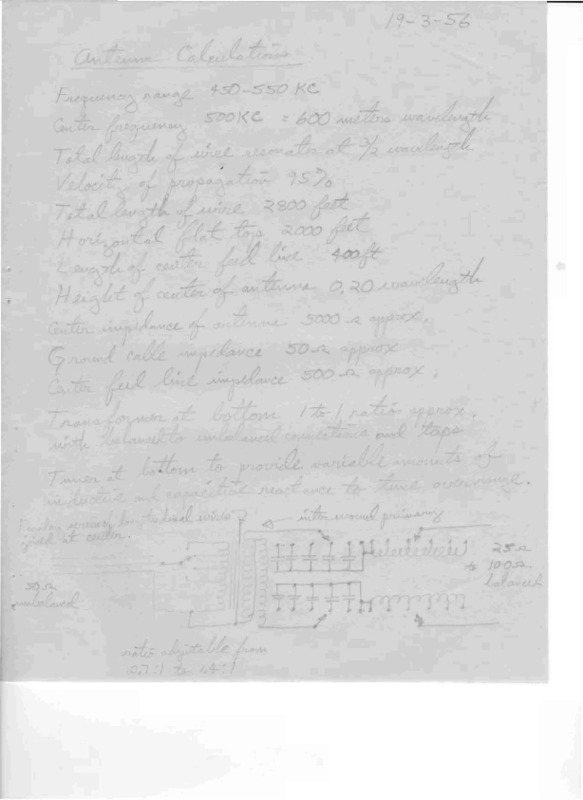 19-3-56
Antenna Calculations
Frequency range 450-550 KC
Center frequency 500KC = 600 meters wavelength
Total length of wire resonates at 3/2 wavelength
Velocity of propagation 95%
Total length of wire 2800 feet
Horizontal flat top 2000 feet
Length of center feed line 400ft
Height of center of antenna 0.20 wavelength
Center impedance of antenna 5000 Ω approx.
Ground cable impedance 50 Ω approx
Center feed line impedance 500 Ω approx.
Transformer at bottom 1 to 1 ratio approx.
with balanced to unbalanced connections and taps
Tuner at bottom to provide variable amounts of
inductive and capacitive reactance to tune over range.
longitudinal wires
at center.
inter wound primary
50Ω
unbalanced
25Ω
to 100Ω
balanced
ratio adjustable from
0.7:1 to 1.4:1